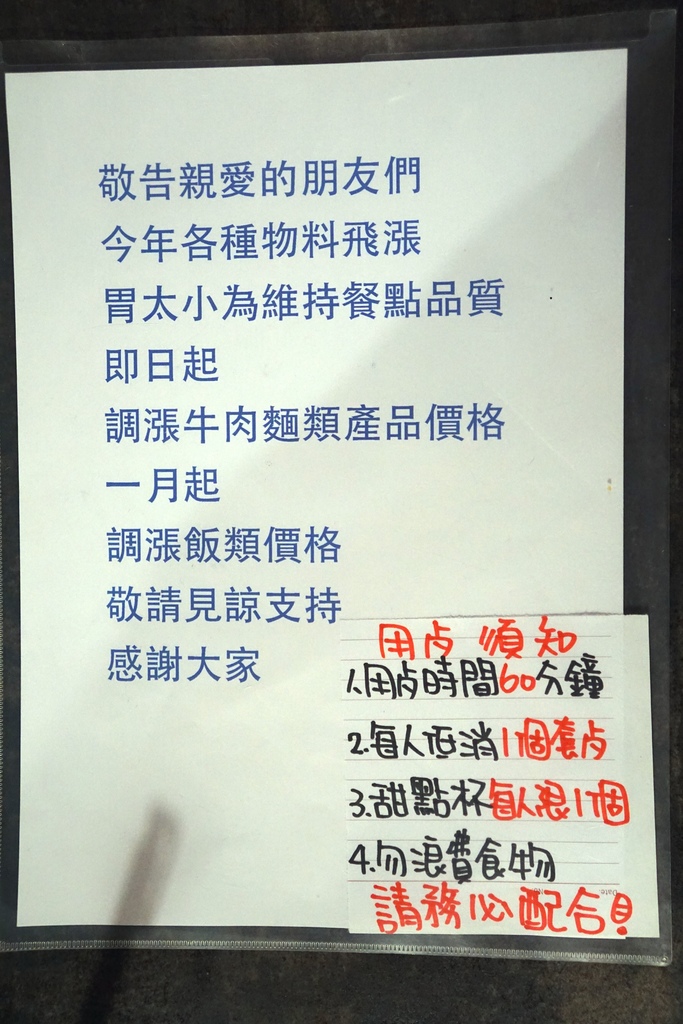 敬告親愛的朋友們
今年各種物料飛漲
胃太小為維持餐點品質
即日起
調漲牛肉麵類產品價格
一月起
調漲飯類價格
敬請見諒支持
感謝大家
用占須知
1.用占時間60分鐘
2.每人低消1個套占
3.甜點杯每人限1個
4.勿浪費食物
請務必配合!